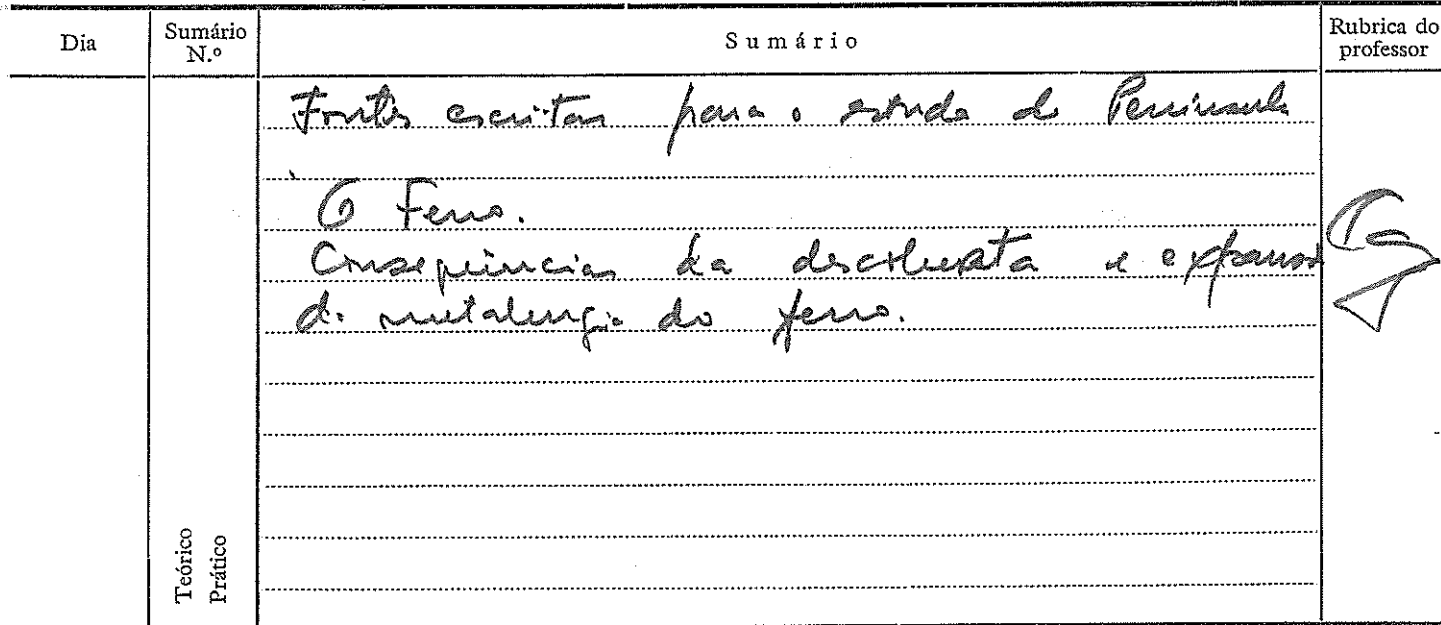 Dia
Sumário N.º
Sumário
Rubrica do professor
Fontes escritas para o estudo da Península
O Ferro.
Consequências da descoberta e expansão
da metalurgia do ferro.
Teórico
Prático